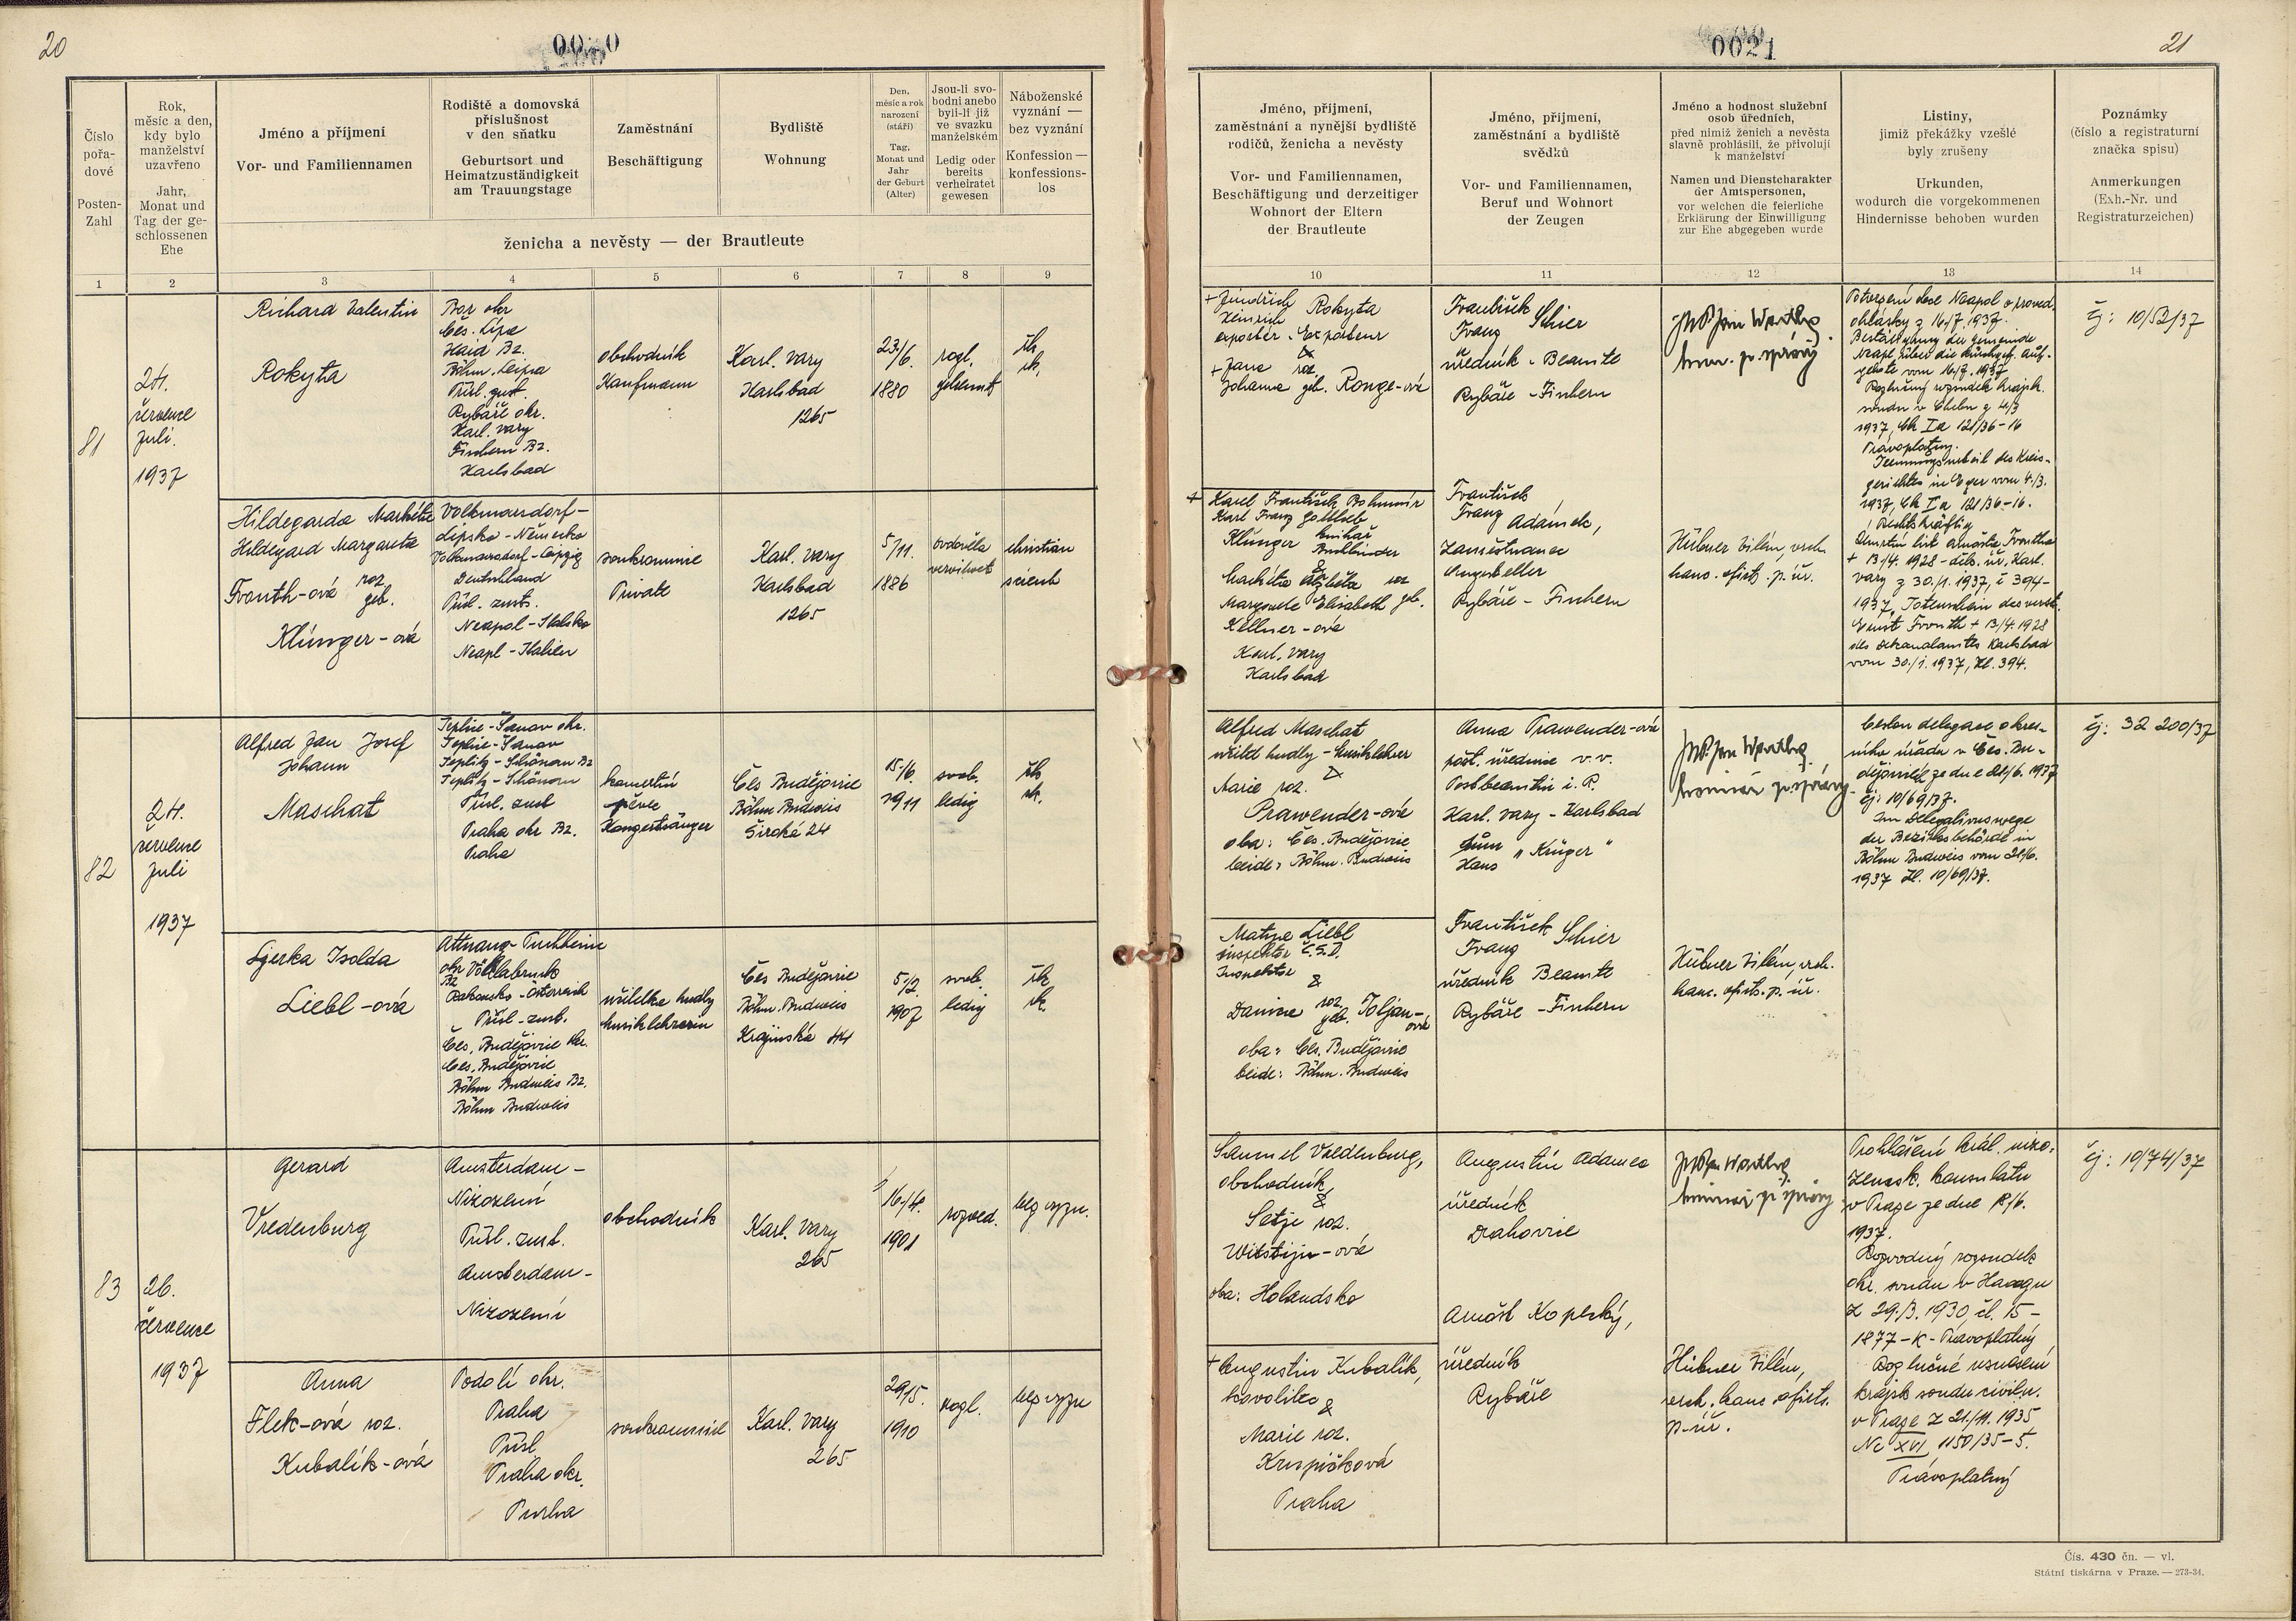 20
00 0
Číslo
pořa-
dové
Posten-
Zahl
Rok,
měsíc a den,
kdy bylo
manželství
uzavřeno
Jahr,
Monat und
Tag der ge-
schlossenen
Ehe
Jméno a příjmení
Vor- und Familiennamen
Rodiště a domovská
příslušnost
v den sňatku
Geburtsort und
Heimatzuständigkeit
am Trauungstage
Zaměstnání
Beschäftigung
Bydliště
Wohnung
Den,
měsíc a rok
narození
(stáří)
Tag,
Monat und
Jahr
der Geburt
(Alter)
Jsou-li svo-
bodni anebo
byli-li již
ve svazku
manželském
Ledig oder
bereits
verheiratet
gewesen
Náboženské
vyznání —
bez vyznání
Konfession —
konfessions-
los
ženicha a nevěsty — der Brautleute
1 2 3 4 5 6 7 8 9
81
24.
července
Juli.
1937
Richard Valentin
Rokyta
Bor okr
Čes. Lípa
Haid Bz.
Böhm. Leipa
Přísl. zust.
Rybáře okr.
Karl. Vary
Fischern Bz.
Karlsbad
obchodník
Kaufmann
Karl. Vary
Karlsbad
1265
23/6.
1880
rozl.
getrennt
řk.
rk.
Hildegarda Markéta
Hildegard Margareta
Fronth-ová roz.
geb.
Klünger-ová
Volkmarsdorf-
Lipsko-Německo
Volkmarsdorf-Leipzig
Deutschland
Přísl. zust.
Neapol-Italsko
Neapl-Italien
soukromnice
Private
Karl. Vary
Karlsbad
1265
5/11.
1886
ovdověla
verwitwet
christian
scienc
82
24.
července
Juli
1937
Alfred Jan Josef
Johann
Maschat
Teplice-Šanov okr.
Teplice-Šanov
Teplitz-Schönau Bz
Teplitz-Schönau
Přísl. zust
Praha okr Bz.
Praha
koncertní
pěvec
Konzertsänger
Čes Budějovice
Böhm Budweis
Široká 24
15./6.
1911
svob.
ledig
řk
rk.
Gerka Isolda
Liebl-ová
Attnang-Puchheim
okr Vöcklabruck
Bz
Rakousko-Österreich
Přísl-zust.
Čes. Budějovice okr.
Čes. Budějovice
Böhm Budweis Bz.
Böhm Budweis
učitelka hudby
Musiklehrerin
Čes Budějovice
Böhm. Budweis
Krajinská 44
5/2.
1907
svob.
ledig
řk
rk.
83
26.
července
1937
Gerard
Vredenburg
Amsterdam-
Nizozemí
Přísl. zust.
Amsterdam-
Nizozemí
obchodník
Karl. Vary
265
16./4.
1901
rozved.
bez vyzn.
Anna
Flek-ová roz.
Kubalík-ová
Podolí okr.
Praha
Přísl
Praha okr.
Praha
soukromnice
Karl. Vary
265
29/5.
1910
rozl.
bez vyzn
0021
21
Jméno, příjmení,
zaměstnání a nynější bydliště
rodičů, ženicha a nevěsty
Vor- und Familiennamen,
Beschäftigung und derzeitiger
Wohnort der Eltern
der Brautleute
Jméno, příjmení,
zaměstnání a bydliště
svědků
Vor- und Familiennamen,
Beruf und Wohnort
der Zeugen
Jméno a hodnost služební
osob úředních,
před nimiž ženich a nevěsta
slavně prohlásili, že přivolují
k manželství
Namen und Dienstcharakter
der Amtspersonen,
vor welchen die feierliche
Erklärung der Einwilligung
zur Ehe abgegeben wurde
Listiny,
jimiž překážky vzešlé
byly zrušeny
Urkunden,
wodurch die vorgekommenen
Hindernisse behoben wurden
Poznámky
(číslo a registraturní
značka spisu)
Anmerkungen
(Exh.-Nr. und
Registraturzeichen)
10 11 12 13 14
+ Jindřich Rokyta
Heinrich
exportér-Exporteur
&
+ Jana roz.
Johanna geb. Ronge-ová
František
Franz Schier
úředník-Beamte
Rybáře-Fischern
JUDr Jan Worthy
kom. p. správy
Potvrzení obce Neapol o proved.
ohlášky z 16/7. 1937.
Bestätigung der Gemeinde
Neapl über die kundgeg. Auf-
gebote vom 16/7. 1937
Rozlučný rozsudek krajsk.
soudu v Chebu z 4/3
1937, Ck Ia 121/36-16
Právoplatný.
Trennungsurteil des Kreis-
gerichtes in Eger vom 4./3.
1937, Ck Ia 121/36-16.
Rechtskräftig
Úmrtní list Arnošta Frontha
+ 13/4. 1928 - děk. úř. Karl.
Vary z 30./1. 1937, č 394-
1937, Totenschein des verst.
Ernst Fronth + 13/4. 1928
des Dekanalamtes Karlsbad
vom 30./1. 1937, Zl. 394.
čj: 10/52/37
+ Karel František Bohumír
Karl Franz Gottlieb
Klünger knihař
Buchbinder
&
Markéta Alžběta roz
Margarete Elisabeth geb.
Kellner-ová
Karl. Vary
Karlsbad
František
Franz Adámek,
zaměstnanec
Angestellter
Rybáře-Fischern
Hübner Vilém, vrch.
kanc. ofic. p. úř.
Alfred Maschat
učitel hudby-Musiklehrer
&
Marie roz.
Prawender-ová
oba: Čes. Budějovice
beide: Böhm. Budweis
Anna Prawender-ová
pošt. úřednice v. v.
Postbeamtin i. R.
Karl. Vary-Karlsbad
dům „Krüger“
Haus
JUDr Jan Worthy.
komisař p. správy
Cestou delegace okres-
ního úřadu v Čes. Bu-
dějovicích ze dne 28/6. 1937
čj: 10/69/37.
Im Delegationswege
der Bezirksbehörde in
Böhm Budweis vom 28/6.
1937 Zl. 10/69/37.
čj: 32 200/37
Matyas Liebl
inspektor Č.S.D.
Inspektor
&
Damine roz
geb. Toljan-
ová
oba: Čes. Budějovice
beide: Böhm. Budweis
František
Franz Schier
úředník Beamte
Rybáře-Fischern
Hübner Vilém, vrch.
kanc. ofic. p. úř.
Samuel Vredenburg,
obchodník
&
Setje roz.
Witstijn-ová
oba: Holandsko
Augustin Adamec
úředník
Drahovice
JUDr Jan Worthy
komisař p. správy
Prohlášení král. nizo-
zemsk. konsulátu
v Praze ze dne 18/6.
1937.
Rozvodný rozsudek
okr. soudu v Haagu
z 29./3. 1930, čl. 15-
1877-K-Právoplatný
Rozlučné usnesení
krajsk soudu civiln.
v Praze z 21./11. 1935
Nc XVI 1150/35-5.
Právoplatný
čj: 10/74/37
+ Augustin Kubalík,
kovolitec
&
Marie roz.
Krupičková
Praha
Arnošt Kopecký,
úředník
Rybáře
Hübner Vilém,
vrch. kanc ofic.
p. úř.
Čís. 430 čn. — vl.
Státní tiskárna v Praze. — 273-34.